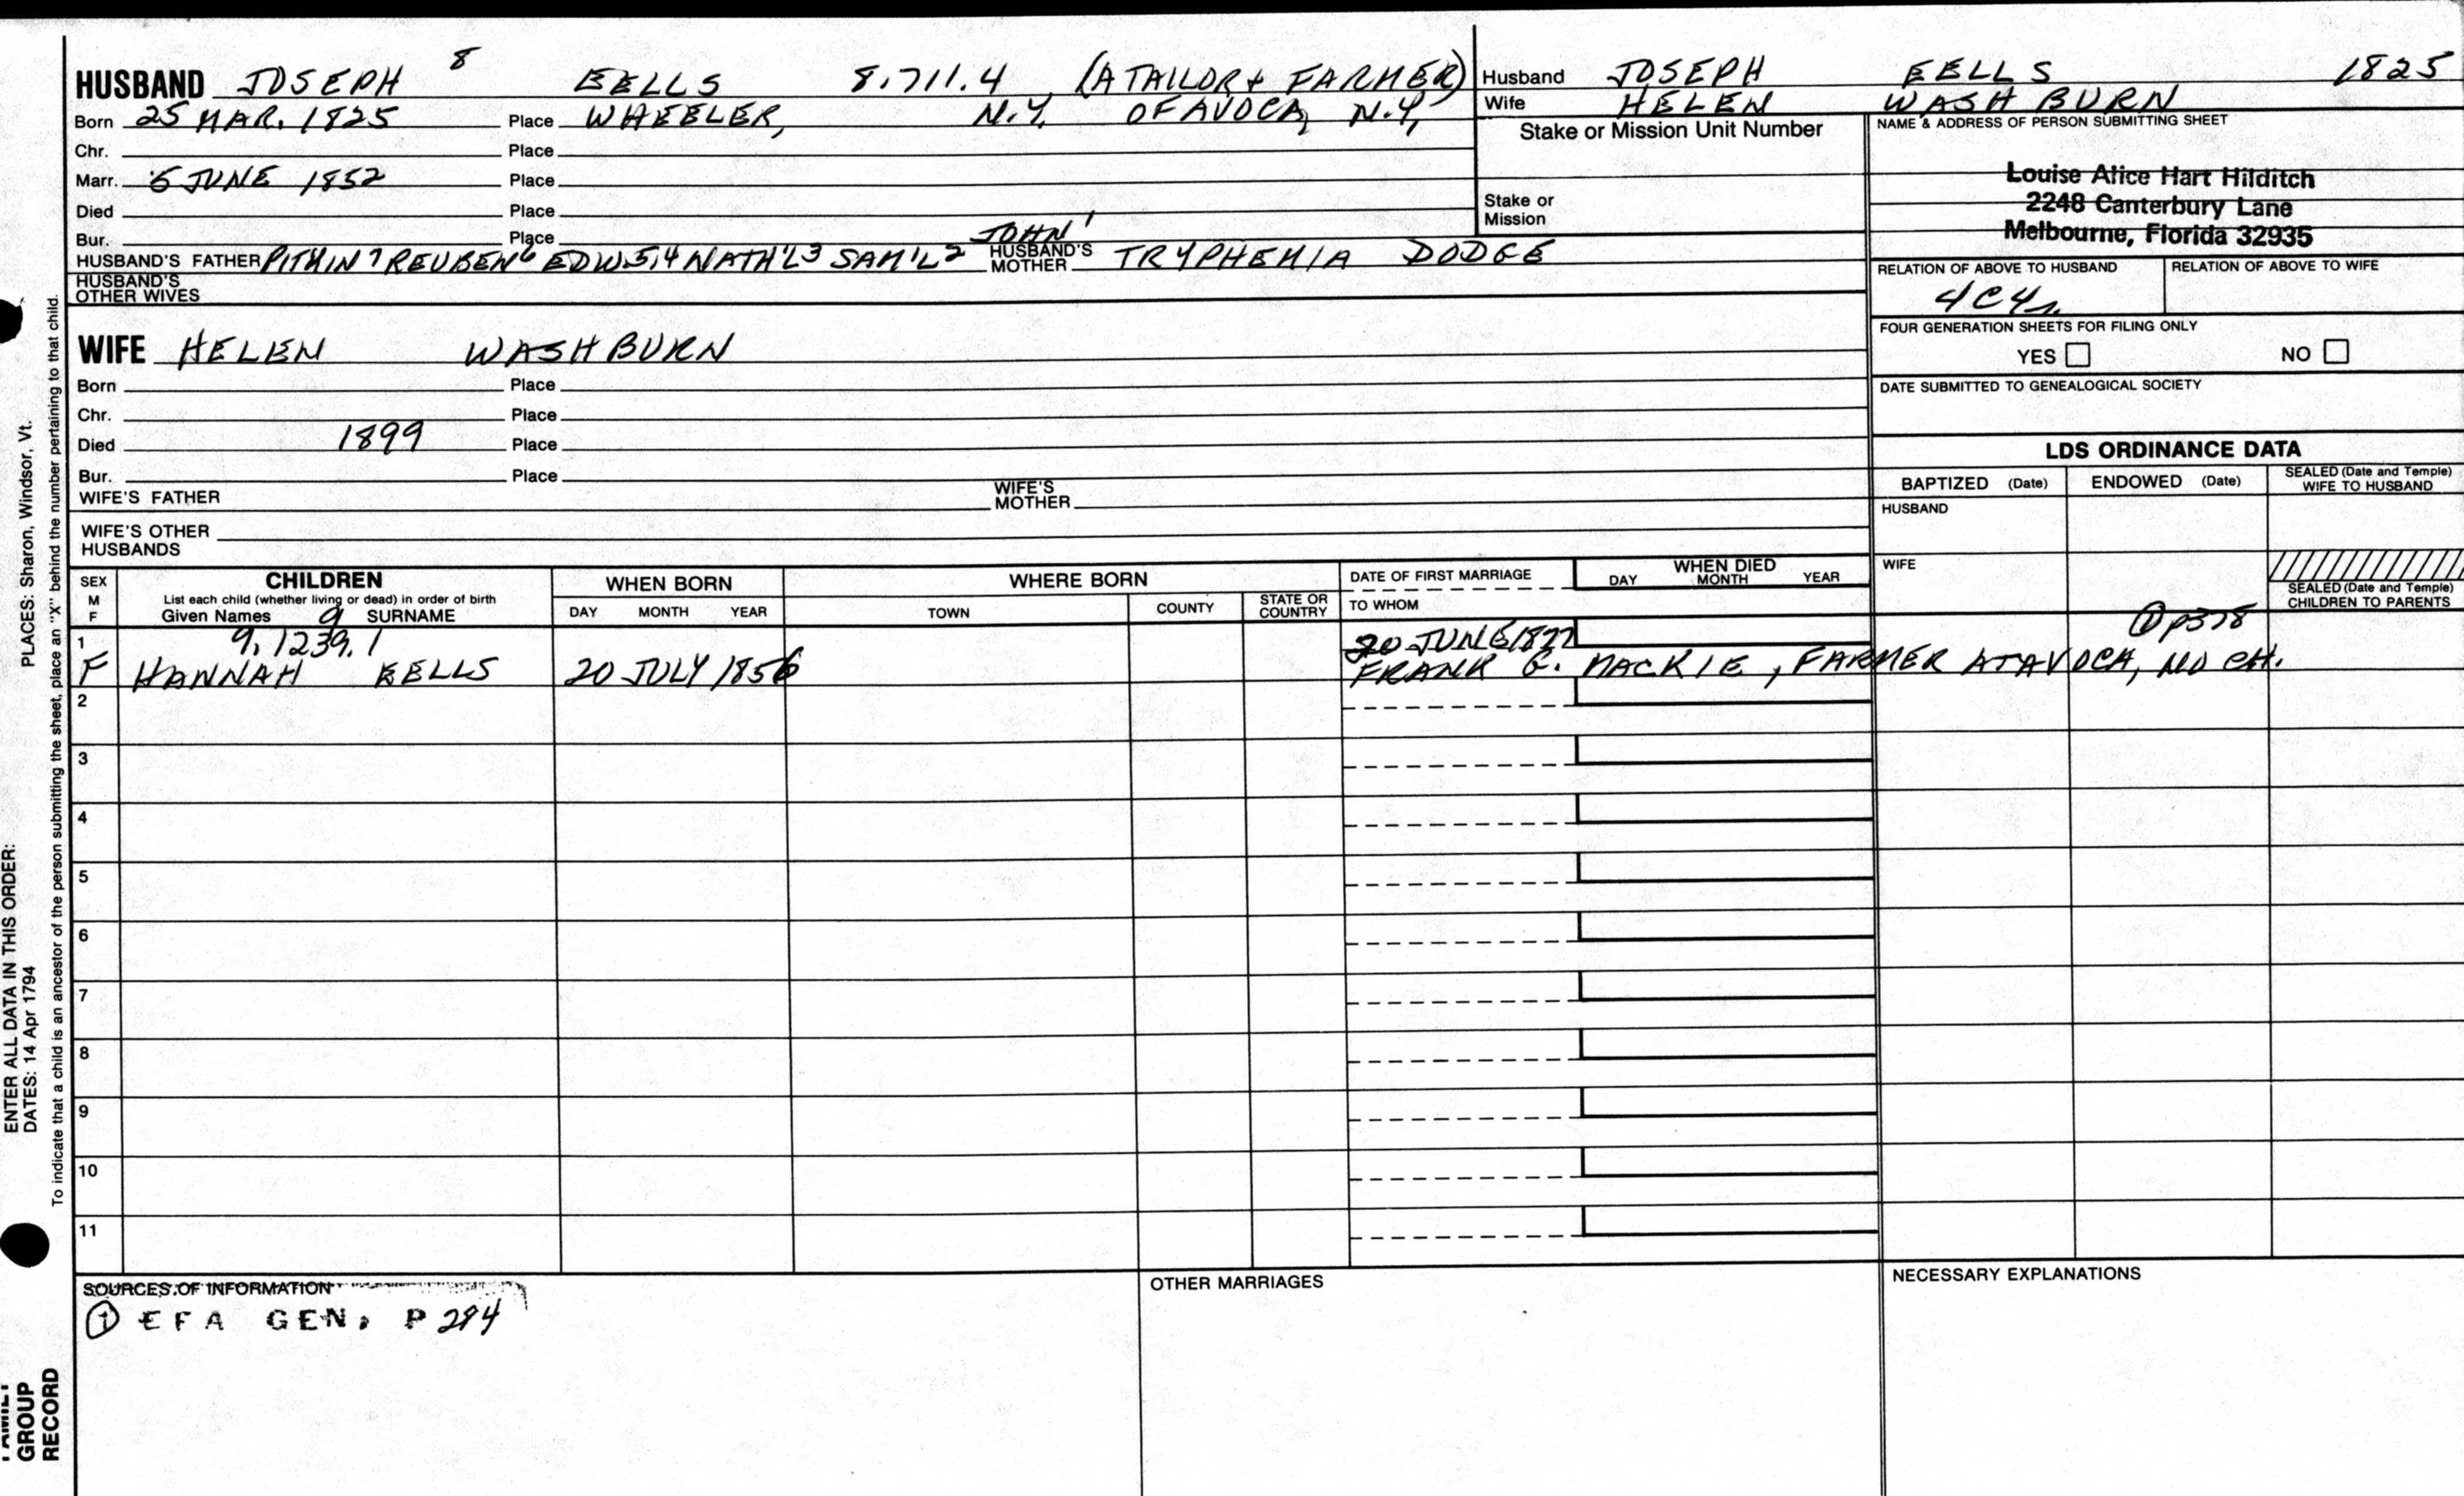 HUSBAND JOSEPH 8 EELLS 8.711.4 (A TAILOR + FARMER)
Born 25 MAR. 1825 Place WHEELER, N.Y. OF AVOCA, N.Y.
Chr. Place
Marr. 5 JUNE 1852 Place
Died Place
Bur. Place
HUSBAND'S FATHER 7 REUBEN 6 EDW 5,4 NATH'L 3 SAM'L 2 JOHN 1 HUSBAND'S MOTHER TRYPHEMIA DODGE
HUSBAND'S OTHER WIVES
Husband JOSEPH EELLS 1825
Wife HELEN WASHBURN
Stake or Mission Unit Number
Stake or Mission
NAME & ADDRESS OF PERSON SUBMITTING SHEET
Louise Alice Hart Hilditch
2248 Canterbury Lane
Melbourne, Florida 32935
RELATION OF ABOVE TO HUSBAND RELATION OF ABOVE TO WIFE
FOUR GENERATION SHEETS FOR FILING ONLY
YES NO
DATE SUBMITTED TO GENEALOGICAL SOCIETY
WIFE HELEN WASHBURN
Born Place
Chr. Place
Died 1899 Place
Bur. Place
WIFE'S FATHER WIFE'S MOTHER
WIFE'S OTHER HUSBANDS
LDS ORDINANCE DATA
BAPTIZED (Date) ENDOWED (Date) SEALED (Date and Temple) WIFE TO HUSBAND
HUSBAND
WIFE
SEALED (Date and Temple) CHILDREN TO PARENTS
SEX M F
CHILDREN
List each child (whether living or dead) in order of birth
Given Names 9 SURNAME
WHEN BORN
DAY MONTH YEAR
WHERE BORN
TOWN COUNTY STATE OR COUNTRY
DATE OF FIRST MARRIAGE
TO WHOM
WHEN DIED
DAY MONTH YEAR
1 9.1239.1 20 JUNE 1877 ① p378
F HANNAH EELLS 20 JULY 1856 FRANK G. MACKIE, FARMER AT AVOCA, NO CH.
2
3
4
5
6
7
8
9
10
11
SOURCES OF INFORMATION
① EFA GEN. P 294
OTHER MARRIAGES
NECESSARY EXPLANATIONS
ENTER ALL DATA IN THIS ORDER:
DATES: 14 Apr 1794 PLACES: Sharon, Windsor, Vt.
To indicate that a child is an ancestor of the person submitting the sheet, place an "X" behind the number pertaining to that child.
GROUP
RECORD